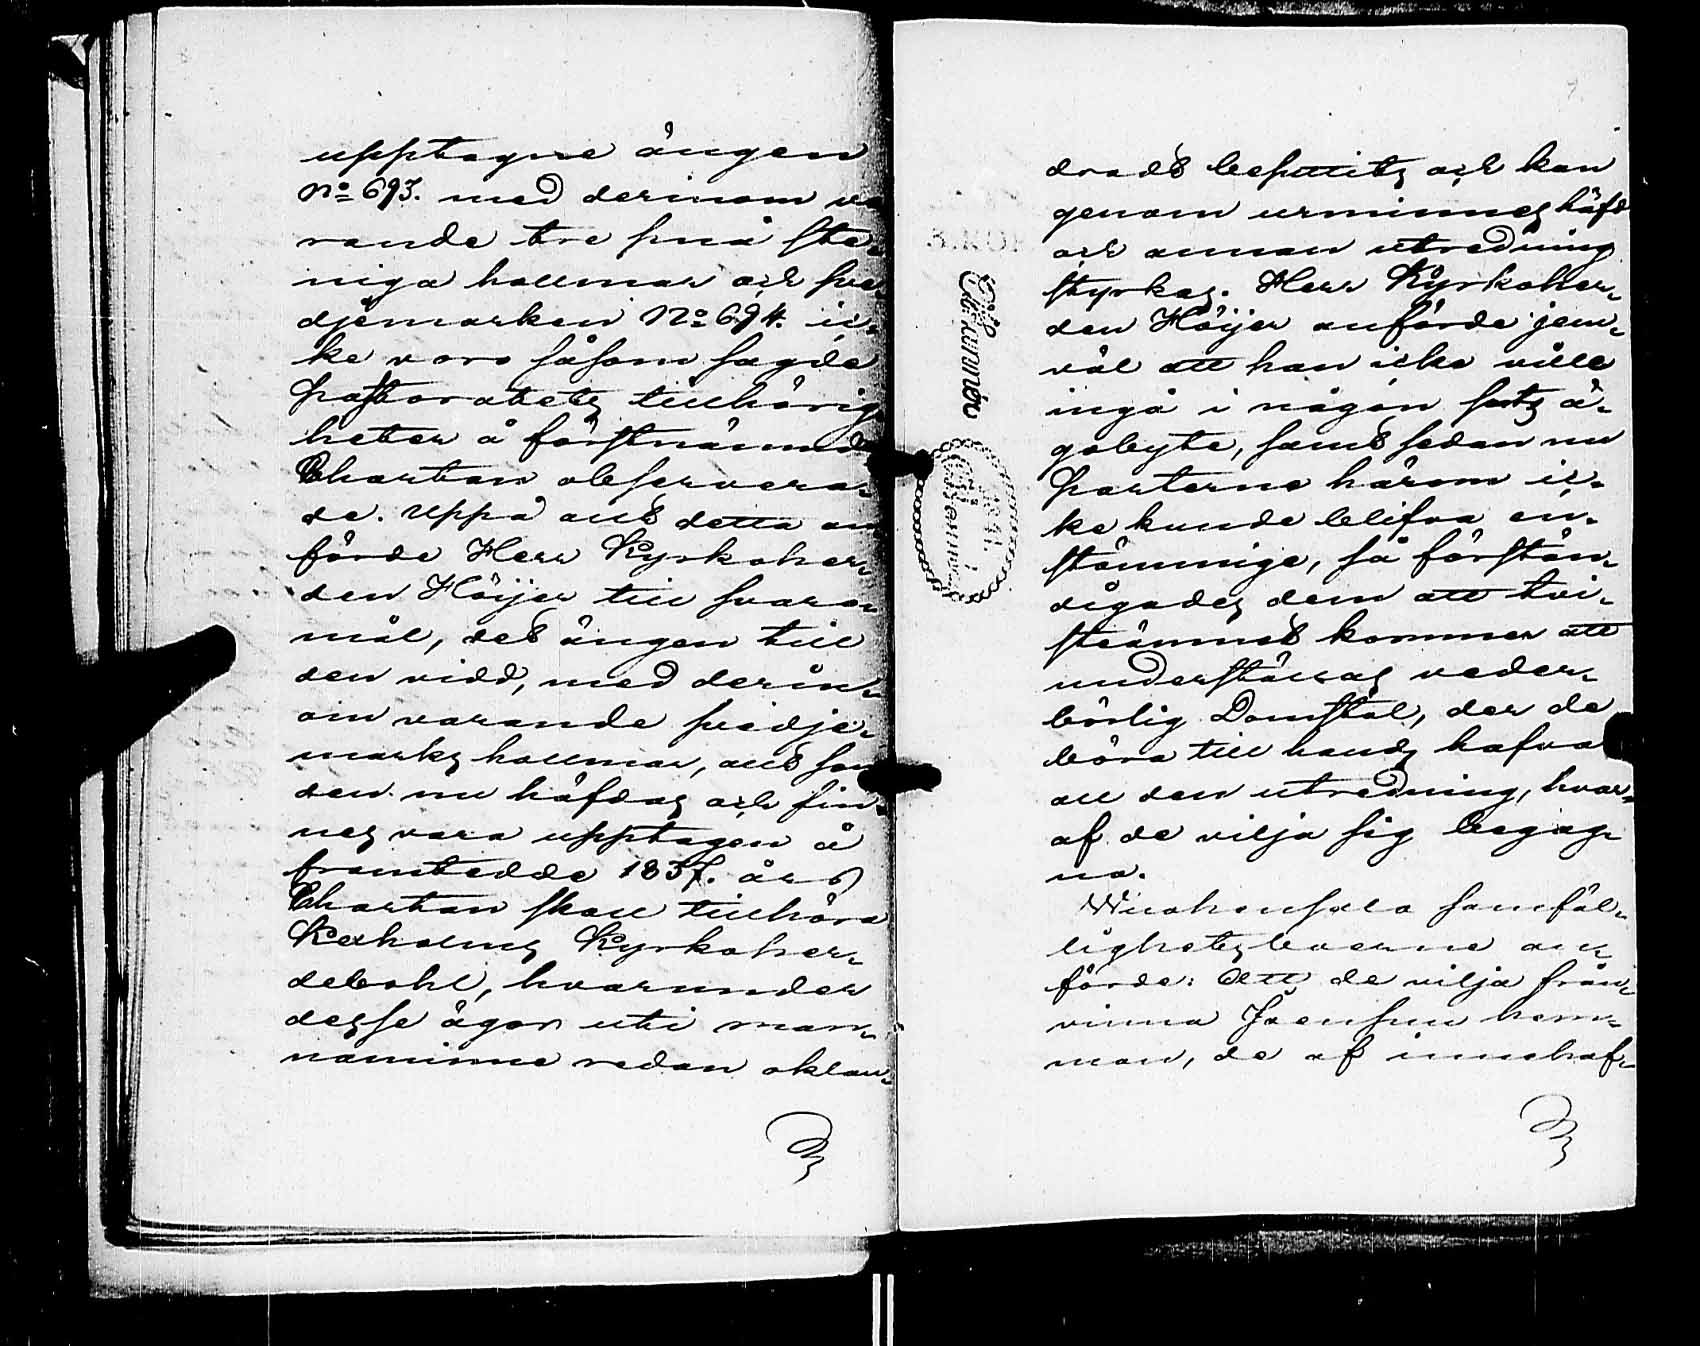 upptagne ängen
No 693. med derinom va
rande tre små ste-
niga hallmar och sve-
djemarken No 694. ic-
ke voro såsom sagde
Pastoratets tillhörig-
heter å förstnämnde
Chartan observera-
de. Uppå allt detta an
förde Herr Kyrkoher-
den Höijer till svaro-
mål, det ängen till
den vidd, med derin-
om varande svedje-
marks hallmar, allt som
den nu häfdas och fin-
nes vara upptagen å
framtedde 1837. års
Chartan skall tillhöra
Kexholms Kyrkoher-
debohl, hvarunder
desse ägor uti man-
naminne redan oklan-
7.
dradt besuttits och kan
genom urminnes häfd
och annan utredning
styrkas. Herr Kyrkoher-
den Höijer anförde jem-
väl att han icke ville
ingå i någon sorts ä-
gobyte, samt sedan nu
Parterne härom ic-
ke kunde blifva en-
stämmige, så förstän-
digades dem att tvi-
steämnet kommer att
understäl­las veder-
börlig Domstol, der de
böra till hands hafva
all den utredning, hvar-
af de vilja sig begag-
na.
Wuohensalo samfäl-
lighetsboerne an-
förde: Att de vilja från-
vinna Jaensuu hem-
man, de af innehaf-